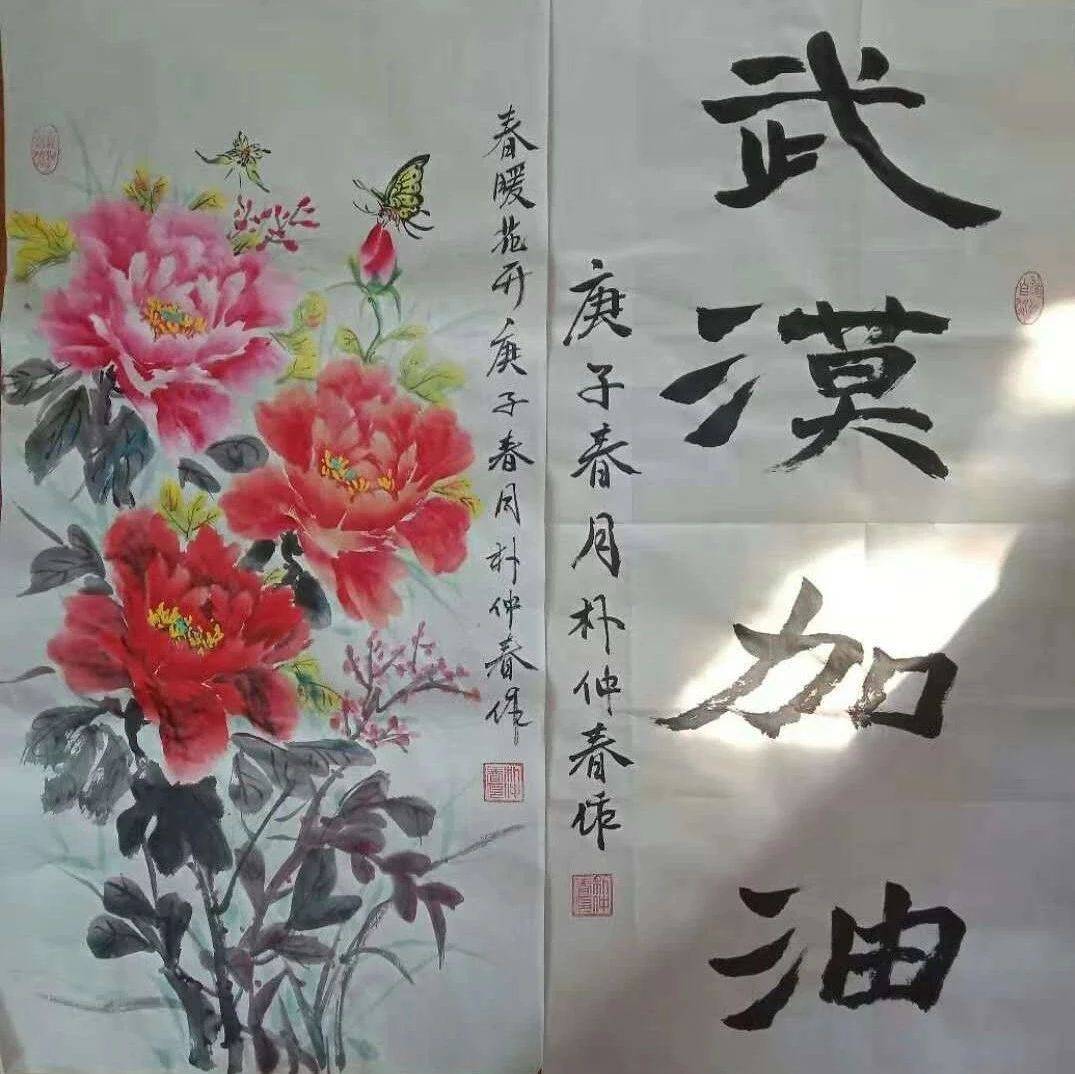 武漢加油
庚子春月朴仲春作
春暖花开庚子春月朴仲春作